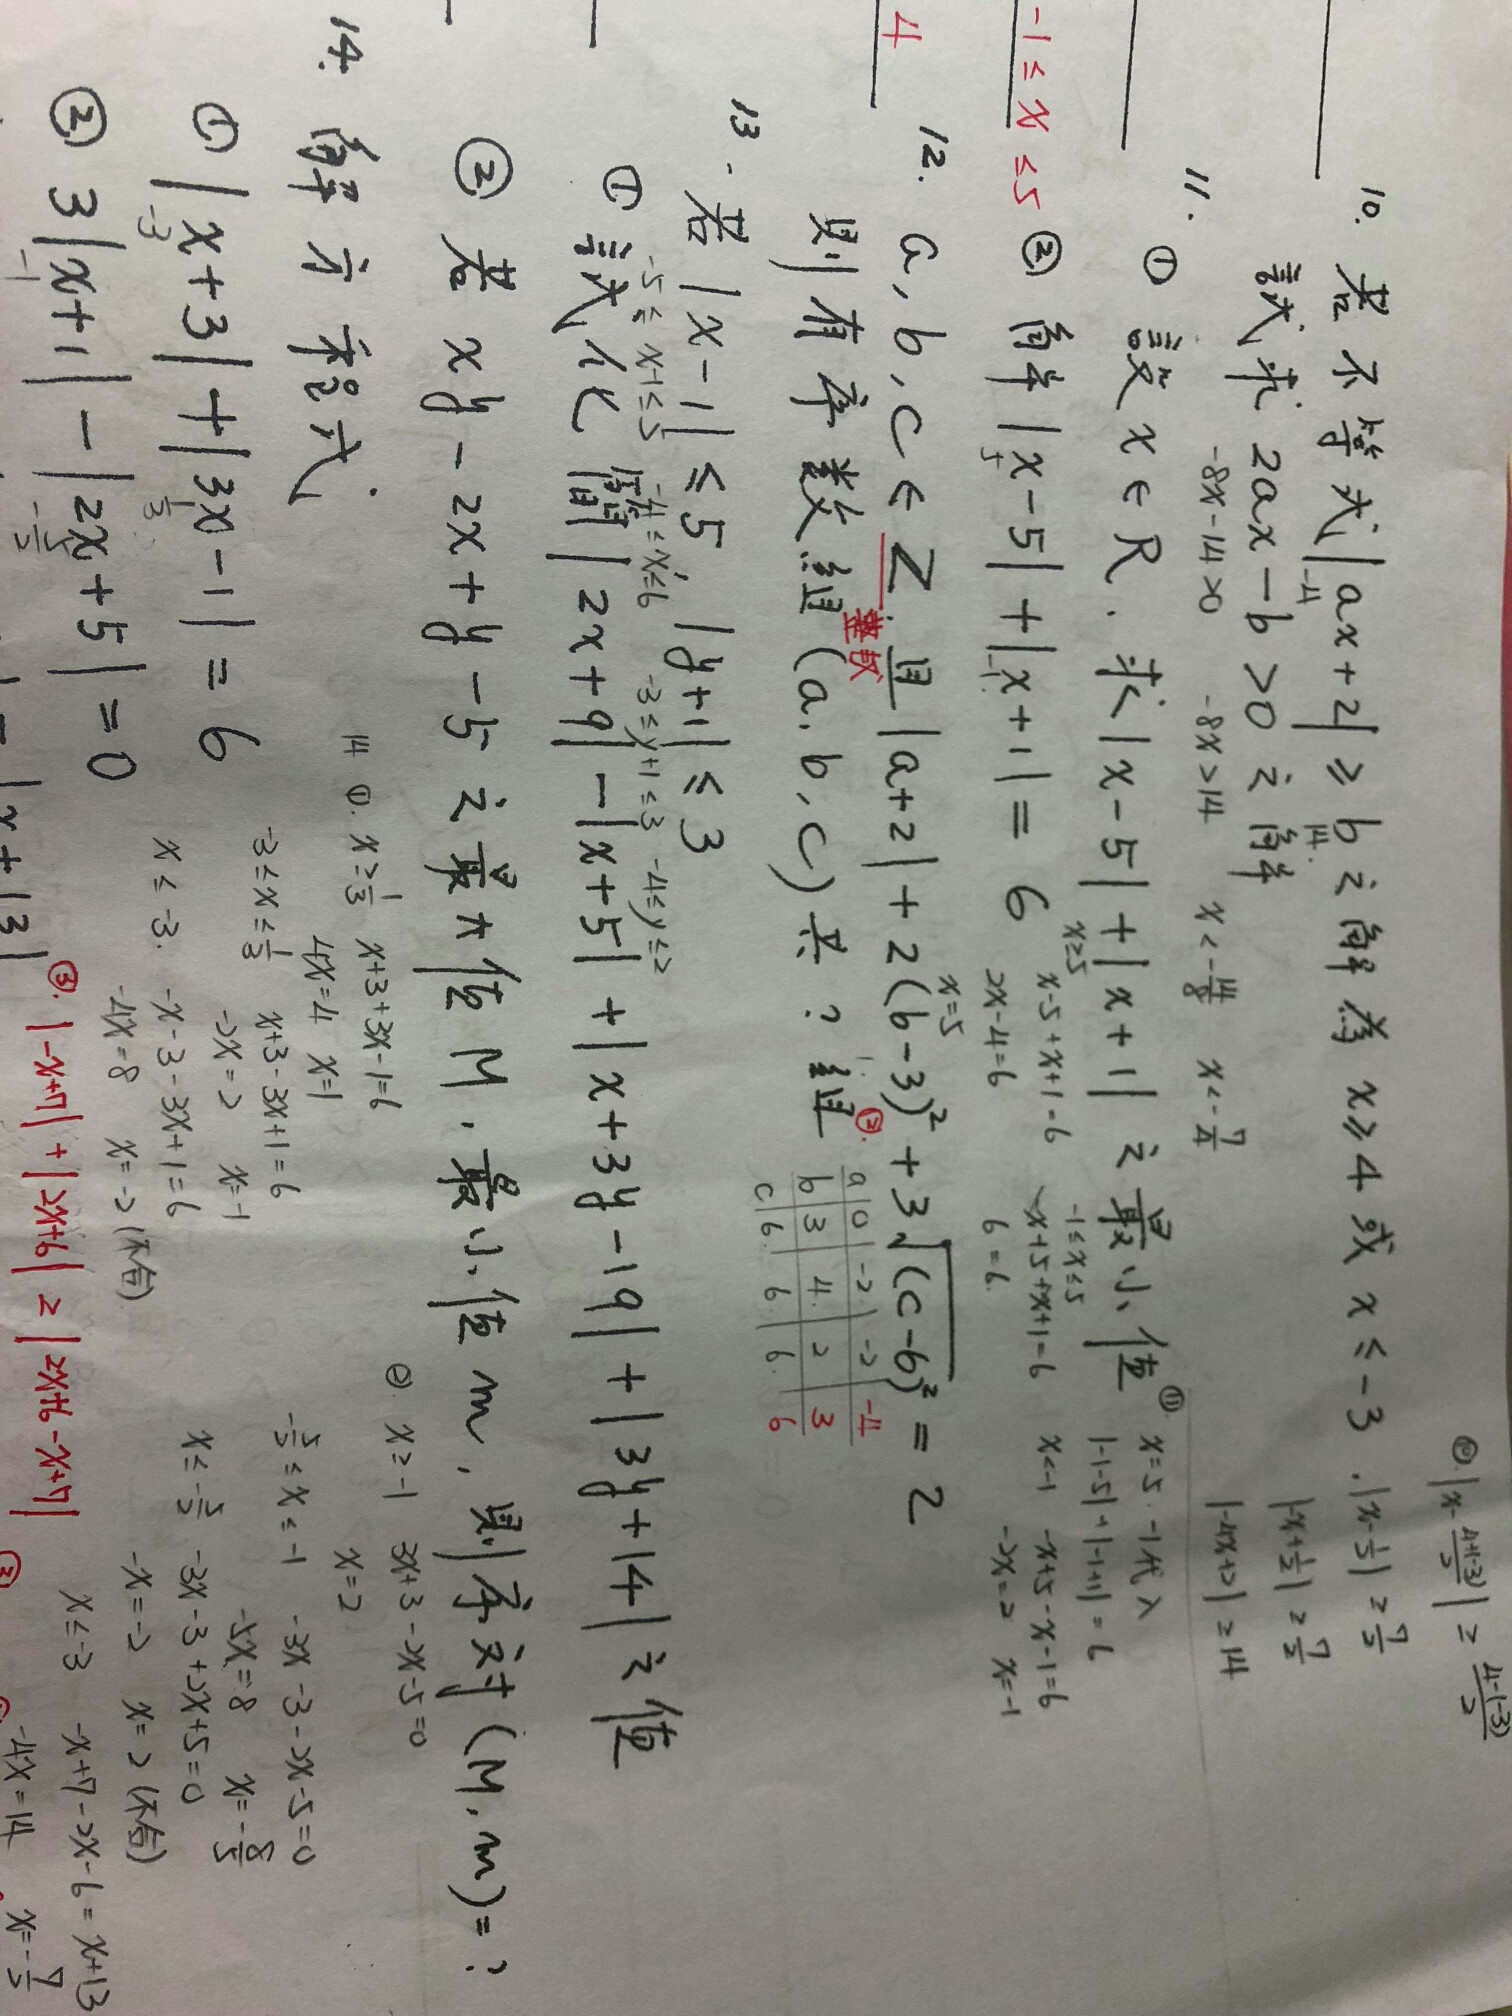 ⑩. |x-\frac{4+(-3)}{2}| ≥ \frac{4-(-3)}{2}
10. 若不等式|ax+2| ≥ b之解為 x≥4 或 x≤-3. |x-\frac{1}{2}| ≥ \frac{7}{2}
-4 14.
試求 2ax-b>0之解 |-x+\frac{1}{2}| ≥ \frac{7}{2}
-8x-14>0 -8x>14 x<-\frac{14}{8} x<-\frac{7}{4} |-4x+2| ≥14
11. ① 設x∈R. 求|x-5|+|x+1|之最小值 ⑪. x=5. -1代入
|-1-5|+|-1+1|=6
x≥5 -1≤x≤5
-1≤x≤5 ② 解|x-5|+|x+1|=6 x-5+x+1=6 -x+5+x+1=6 x<-1 -x+5-x-1=6
5 -1. 2x-4=6 6=6. -2x=2 x=-1
x=5
4 12. a,b,c∈Z. 且|a+2|+2(b-3)²+3√(c-6)²=2
整数
則有序数組(a.b.c)共?組 ⑫.
a 0 -2 -2 -4
b 3 4. 2 3
c 6. 6. 6. 6
13. 若|x-1|≤5 |y+1|≤3
-5≤x-1≤5 -4≤x≤6 -3≤y+1≤3 -4≤y≤2
① 試化簡|2x+9|-|x+5|+|x+3y-19|+|3y+14|之值
② 若xy-2x+y-5之最大值M.最小值m,則序对(M,m)=?
14. 解方程式.
① |x+3|+|3x-1|=6
-3 \frac{1}{3}
② 3|x+1|-|2x+5|=0
-1 -\frac{5}{2}
14 ①. x≥\frac{1}{3} x+3+3x-1=6
4x=4 x=1
-3≤x≤\frac{1}{3} x+3-3x+1=6
-2x=2 x=-1
x≤-3. -x-3-3x+1=6
-4x=8 x=-2(不合)
②. x≥-1 3x+3-2x-5=0
x=2
-\frac{5}{2}≤x≤-1 -3x-3-2x-5=0
-5x=8 x=-\frac{8}{5}
x≤-\frac{5}{2} -3x-3+2x+5=0
-x=-2 x=2(不合)
③. |-x+7|+|2x+6| ≥ |2x+6-x+7|
x≤-3 -x+7-2x-6=x+13
-4x=14 x=-\frac{7}{2}